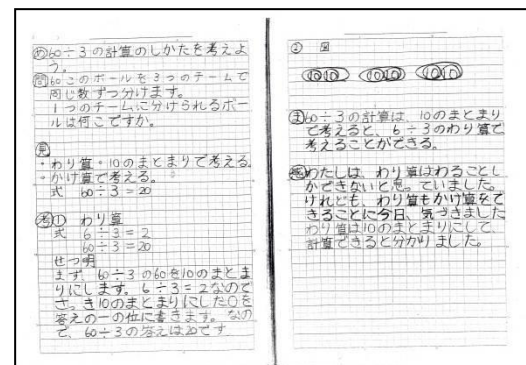 め 60÷3の計算のしかたを考えよ
う。
問 60このボールを3つのチームで
同じ数ずつ分けます。
1つのチームに分けられるボー
ルは何こですか。
見
・わり算・10のまとまりで考える。
・かけ算で考える。
式 60÷3=20
考 ① わり算
式 6÷3=2
60÷3=20
せつ明
まず、60÷3の60を10のまとま
りにします。6÷3=2なので
さっき10のまとまりにした0を
答えの一の位に書きます。なの
で、60÷3の答えは20です
② 図
⑩⑩ ⑩⑩ ⑩⑩
ま 60÷3の計算は、10のまとまり
で考えると、6÷3のわり算で
考えることができる。
感 わたしは、わり算はわることし
かできないと思っていました。
けれども、わり算もかけ算をで
きることに今日、気づきました
わり算は10のまとまりにして、
計算できると分かりました。